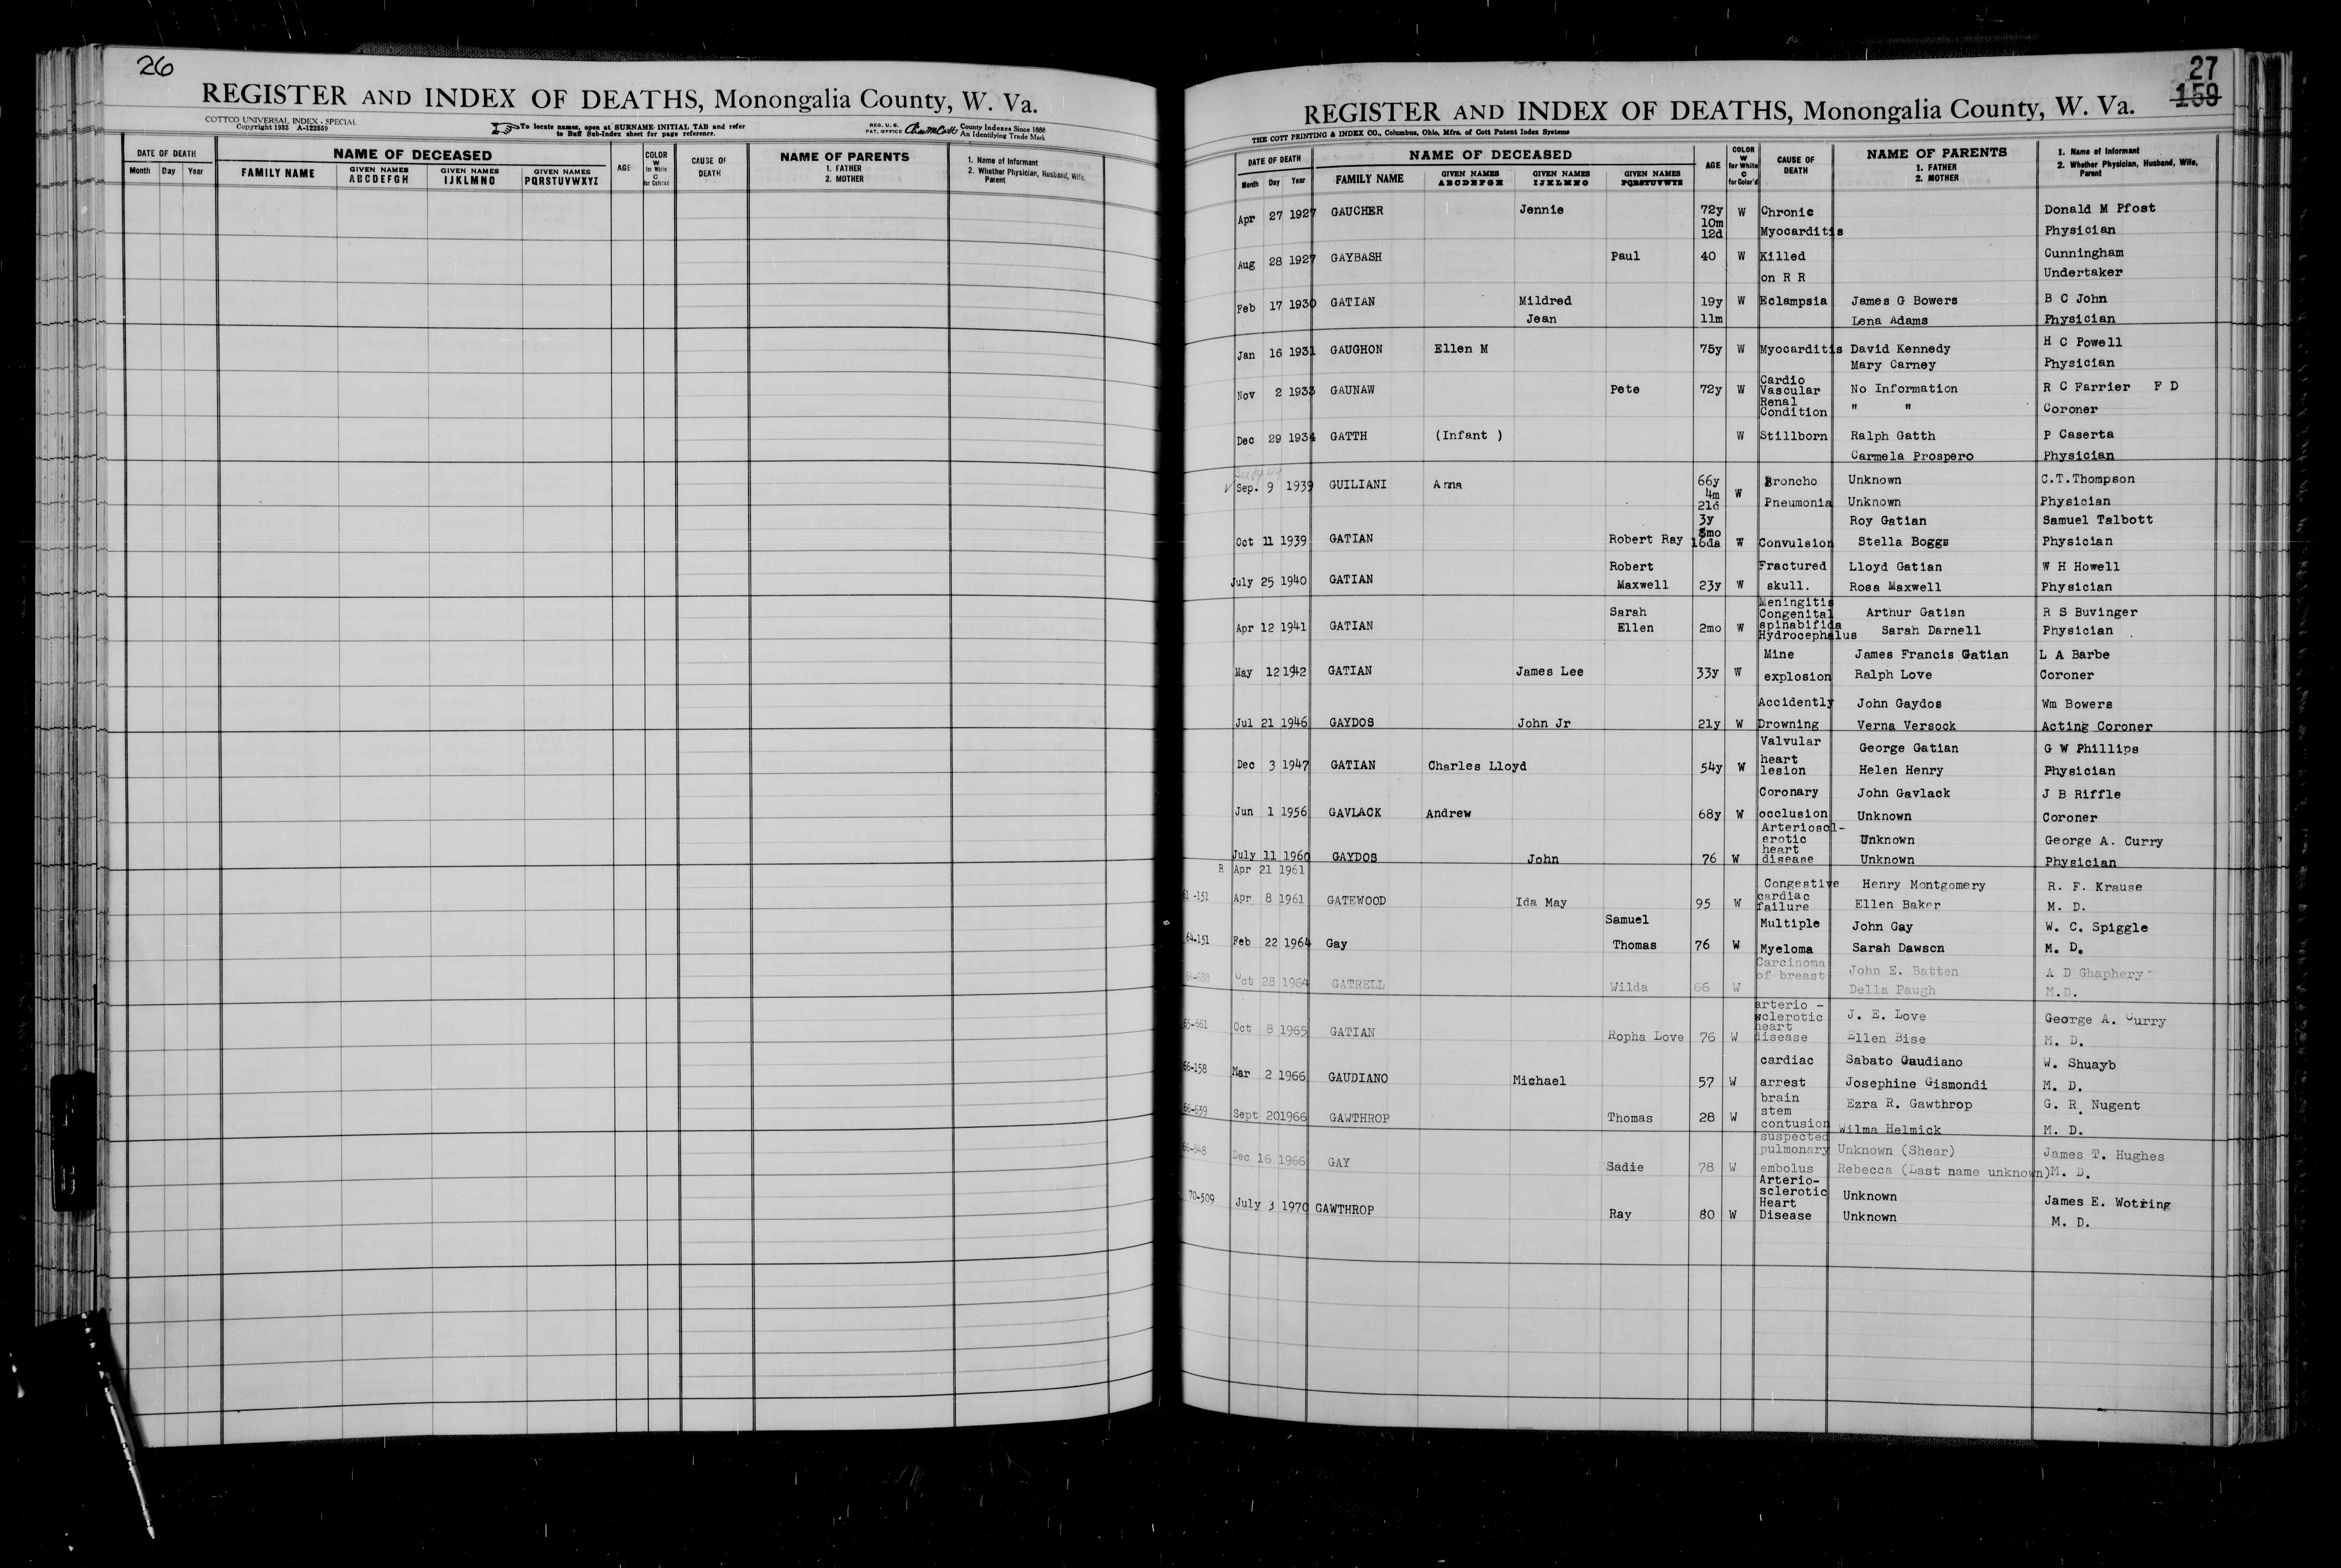 26
REGISTER AND INDEX OF DEATHS, Monongalia County, W. Va.
COTTCO UNIVERSAL INDEX - SPECIAL
Copyright 1932 A-122639
To locate names, open at SURNAME INITIAL TAB and refer
to Buff Sub-Index sheet for page reference.
REG. U. S. PAT. OFFICE
County Indexes Since 1888
An Identifying Trade Mark
DATE OF DEATH
Month Day Year
NAME OF DECEASED
FAMILY NAME
GIVEN NAMES ABCDEFGH
GIVEN NAMES IJKLMNO
GIVEN NAMES PQRSTUVWXYZ
AGE
COLOR W for White C for Colored
CAUSE OF DEATH
NAME OF PARENTS
1. FATHER
2. MOTHER
1. Name of Informant
2. Whether Physician, Husband, Wife, Parent
27
159
REGISTER AND INDEX OF DEATHS, Monongalia County, W. Va.
THE COTT PRINTING & INDEX CO., Columbus, Ohio, Mfrs. of Cott Patent Index Systems
DATE OF DEATH
Month Day Year
NAME OF DECEASED
FAMILY NAME
GIVEN NAMES ABCDEFGH
GIVEN NAMES IJKLMNO
GIVEN NAMES PQRSTUVWXYZ
AGE
COLOR W for White C for Color'd
CAUSE OF DEATH
NAME OF PARENTS
1. FATHER
2. MOTHER
1. Name of Informant
2. Whether Physician, Husband, Wife, Parent
Apr 27 1927 GAUCHER Jennie 72y 10m 12d W Chronic Myocarditis Donald M Pfost Physician
Aug 28 1927 GAYBASH Paul 40 W Killed on R R Cunningham Undertaker
Feb 17 1930 GATIAN Mildred Jean 19y 11m W Eclampsia James G Bowers Lena Adams B C John Physician
Jan 16 1931 GAUGHON Ellen M 75y W Myocarditis David Kennedy Mary Carney H C Powell Physician
Nov 2 1933 GAUNAW Pete 72y W Cardio Vascular Renal Condition No Information " " R C Farrier F D Coroner
Dec 29 1934 GATTH (Infant ) W Stillborn Ralph Gatth Carmela Prospero P Caserta Physician
Sep. 9 1939 GUILIANI Anna 66y 4m 21d W Broncho Pneumonia Unknown Unknown C.T.Thompson Physician
Oct 11 1939 GATIAN Robert Ray 3y 8mo 16da W Convulsion Roy Gatian Stella Boggs Samuel Talbott Physician
July 25 1940 GATIAN Robert Maxwell 23y W Fractured skull. Lloyd Gatian Rosa Maxwell W H Howell Physician
Apr 12 1941 GATIAN Sarah Ellen 2mo W Meningitis Congenital spinabifida Hydrocephalus Arthur Gatian Sarah Darnell R S Buvinger Physician
May 12 1942 GATIAN James Lee 33y W Mine explosion James Francis Gatian Ralph Love L A Barbe Coroner
Jul 21 1946 GAYDOS John Jr 21y W Accidently Drowning John Gaydos Verna Versock Wm Bowers Acting Coroner
Dec 3 1947 GATIAN Charles Lloyd 54y W Valvular heart lesion George Gatian Helen Henry G W Phillips Physician
Jun 1 1956 GAVLACK Andrew 68y W Coronary occlusion John Gavlack Unknown J B Riffle Coroner
July 11 1960 GAYDOS John 76 W Arterioscl-erotic heart disease Unknown Unknown George A. Curry Physician
R Apr 21 1961
61-151 Apr 8 1961 GATEWOOD Ida May 95 W Congestive cardiac failure Henry Montgomery Ellen Baker R. F. Krause M. D.
64-151 Feb 22 1964 Gay Samuel Thomas 76 W Multiple Myeloma John Gay Sarah Dawson W. C. Spiggle M. D.
Oct 28 1964 GATRELL Wilda 66 W Carcinoma of breast John E. Batten Della Paugh A D Ghaphery M.D.
65-661 Oct 8 1965 GATIAN Ropha Love 76 W arterio - sclerotic heart disease J. E. Love Ellen Bise George A. Curry M. D.
66-158 Mar 2 1966 GAUDIANO Michael 57 W cardiac arrest Sabato Gaudiano Josephine Gismondi W. Shuayb M. D.
66-639 Sept 20 1966 GAWTHROP Thomas 28 W brain stem contusion Ezra R. Gawthrop Wilma Helmick G. R. Nugent M. D.
66-848 Dec 16 1966 GAY Sadie 78 W suspected pulmonary embolus Unknown (Shear) Rebecca (Last name unknown) James T. Hughes M. D.
70-509 July 3 1970 GAWTHROP Ray 80 W Arterio-sclerotic Heart Disease Unknown Unknown James E. Wotring M. D.